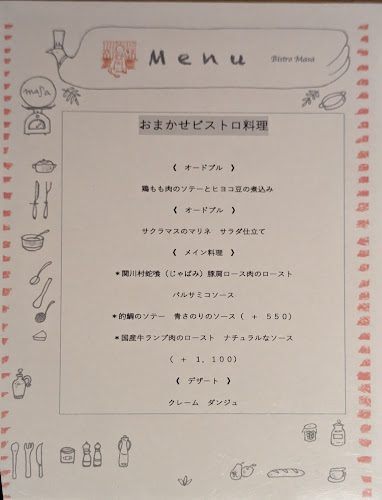 Menu
Bistro Masa
masa
おまかせビストロ料理
《 オードブル 》
鶏もも肉のソテーとヒヨコ豆の煮込み
《 オードブル 》
サクラマスのマリネ サラダ仕立て
《 メイン料理 》
*関川村蛇喰(じゃばみ)豚肩ロース肉のロースト
バルサミコソース
*的鯛のソテー 青さのりのソース( + 550)
*国産牛ランプ肉のロースト ナチュラルなソース
( + 1,100)
《 デザート 》
クレーム ダンジュ